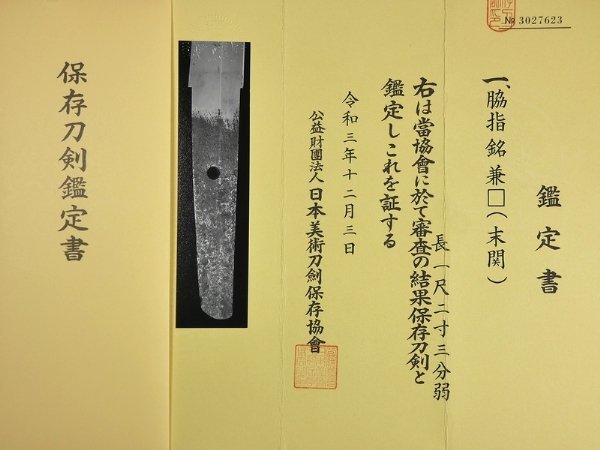 № 3027623
鑑定書
一、脇指 銘 兼□(末関)
長一尺二寸三分弱
右は當協會に於て審査の結果保存刀剣と
鑑定しこれを証する
令和三年十二月三日
公益財團法人 日本美術刀劍保存協會
保存刀剣鑑定書